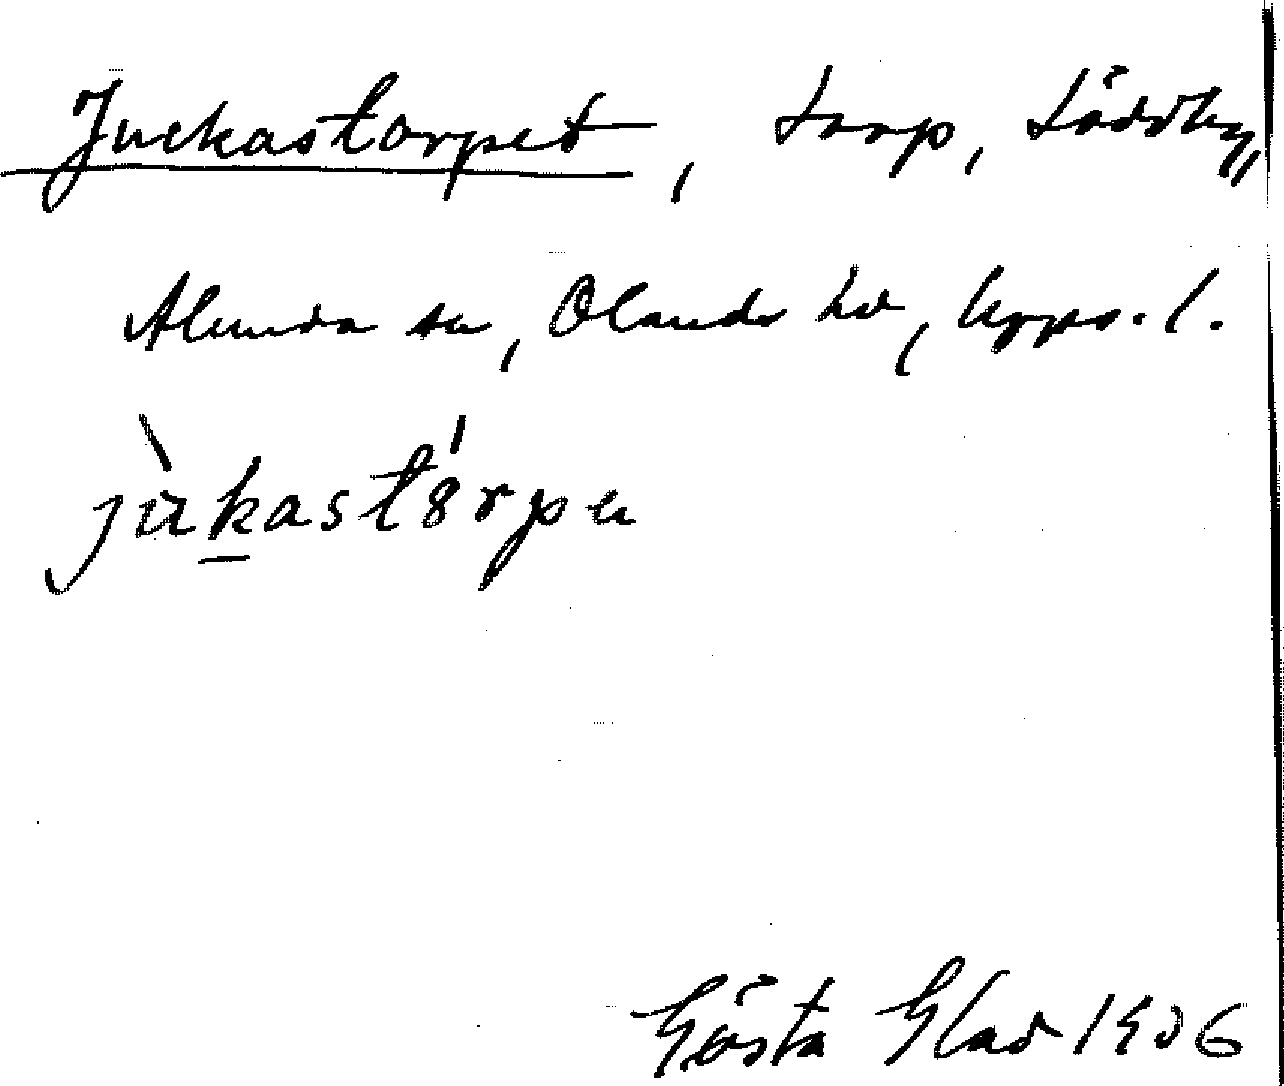 Juckastorpet, torp, Löddby,
Alunda sn, Olands hd, Upps. l.
jùkastórpe
Gösta Glad 1906